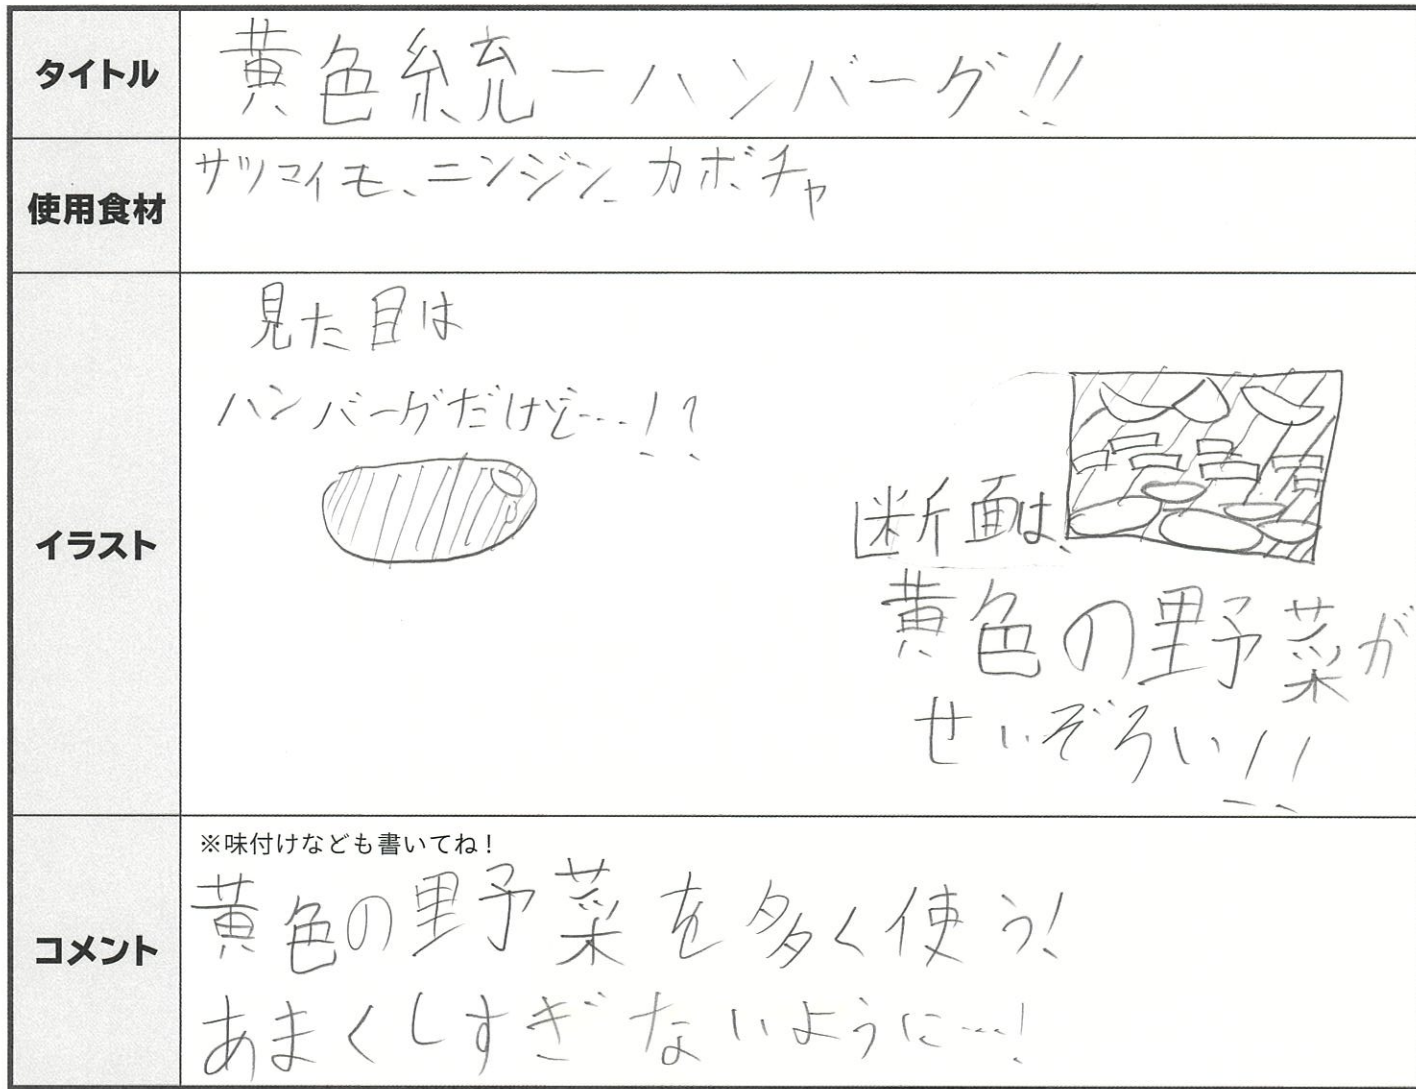 タイトル
黄色統一ハンバーグ!!
使用食材
サツマイモ、ニンジン、カボチャ
イラスト
見た目は
ハンバーグだけど…!?
断面は、
黄色の野菜が
せいぞろい!!
コメント
※味付けなども書いてね!
黄色の野菜を多く使う!
あまくしすぎないように…!